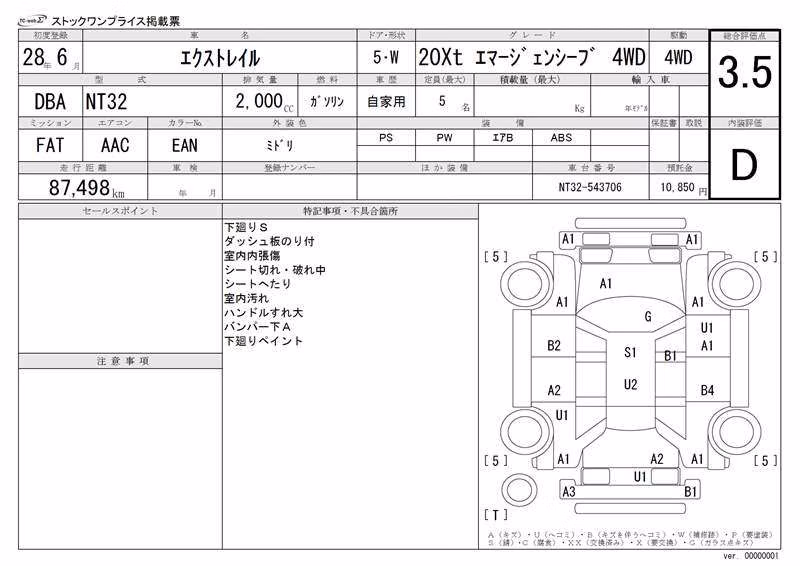 TC-webΣ ストックワンプライス掲載票
初度登録 車名 ドア・形状 グレード 駆動 総合評価点
28年6月 エクストレイル 5・W 20Xt エマージェンシーブ 4WD 4WD 3.5
型式 排気量 燃料 車歴 定員(最大) 積載量(最大) 輸入車
DBA NT32 2,000CC ガソリン 自家用 5名 Kg 年モデル
ミッション エアコン カラーNo. 外装色 装備 保証書 取説 内装評価
FAT AAC EAN ミドリ PS PW エアB ABS D
走行距離 車検 登録ナンバー ほか装備 車台番号 預託金
87,498km 年 月 NT32-543706 10,850円
セールスポイント 特記事項・不具合箇所
下廻りS
ダッシュ板のり付
室内内張傷
シート切れ・破れ中
シートへたり
室内汚れ
ハンドルすれ大
バンパー下A
下廻りペイント
注意事項
A1 A1
[5] [5]
A1
A1 A1
G
U1
B2 A1
S1 B1
A2 U2 B4
U1
[5] A1 A2 A1 [5]
U1
A3 B1
[T]
A(キズ)・U(ヘコミ)・B(キズを伴うヘコミ)・W(補修跡)・P(要塗装)
S(錆)・C(腐食)・XX(交換済み)・X(要交換)・G(ガラス点キズ)
ver. 00000001